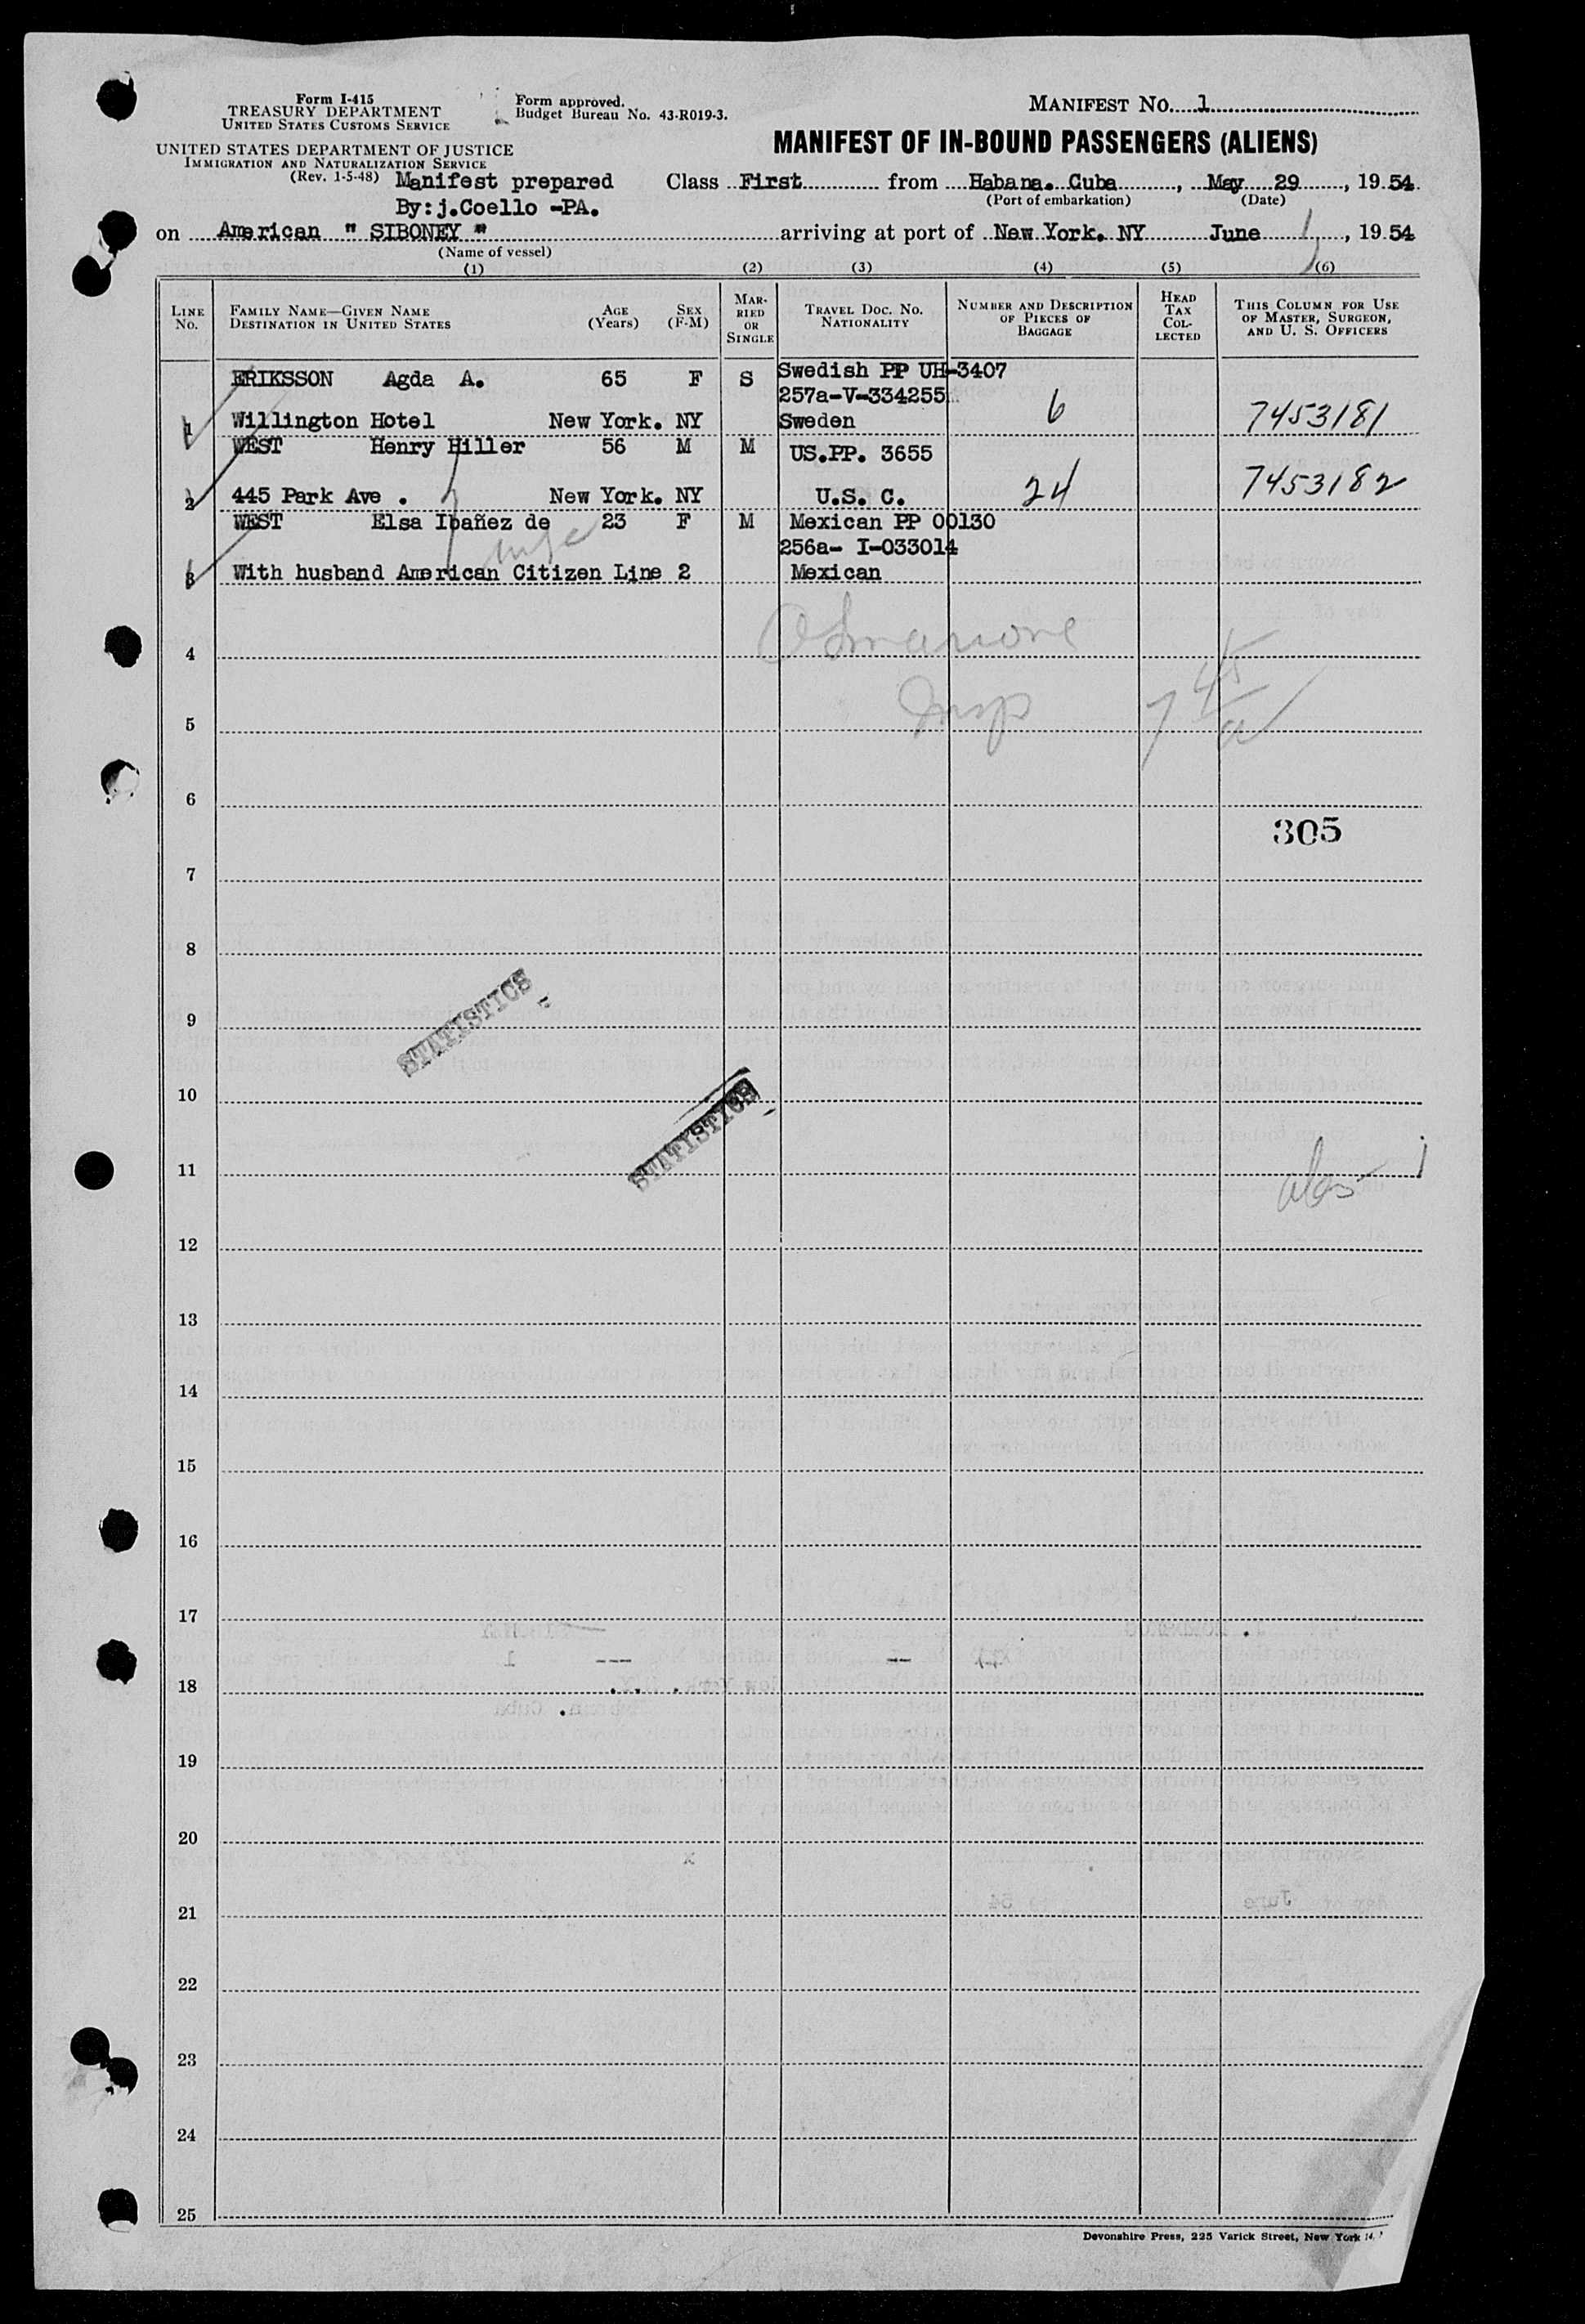 Form I-415
TREASURY DEPARTMENT
UNITED STATES CUSTOMS SERVICE
UNITED STATES DEPARTMENT OF JUSTICE
IMMIGRATION AND NATURALIZATION SERVICE
(Rev. 1-5-48)
Form approved.
Budget Bureau No. 43-R019-3.
Manifest prepared
By:j.Coello -PA.
MANIFEST NO. 1
MANIFEST OF IN-BOUND PASSENGERS (ALIENS)
Class First from Habana. Cuba, May 29, 1954.
(Port of embarkation) (Date)
on American " SIBONEY " arriving at port of New York. NY June 1, 1954
(Name of vessel)
(1) (2) (3) (4) (5) (6)
LINE NO. FAMILY NAME—GIVEN NAME DESTINATION IN UNITED STATES AGE (Years) SEX (F-M) MARRIED OR SINGLE TRAVEL DOC. NO. NATIONALITY NUMBER AND DESCRIPTION OF PIECES OF BAGGAGE HEAD TAX COLLECTED THIS COLUMN FOR USE OF MASTER, SURGEON, AND U. S. OFFICERS
ERIKSSON Agda A. 65 F S Swedish PP UH-3407
257a-V-334255
1 Willington Hotel New York. NY Sweden 6 7453181
WEST Henry Hiller 56 M M US.PP. 3655
2 445 Park Ave . New York. NY U.S. C. 24 7453182
WEST Elsa Ibañez de 23 F M Mexican PP 00130
256a- I-033014
3 With husband American Citizen Line 2 Mexican
4
Insp
5
6
305
7
8
STATISTICS
9
10
STATISTICS
11
12
13
14
15
16
17
18
19
20
21
22
23
24
25
Devonshire Press, 225 Varick Street, New York 14,